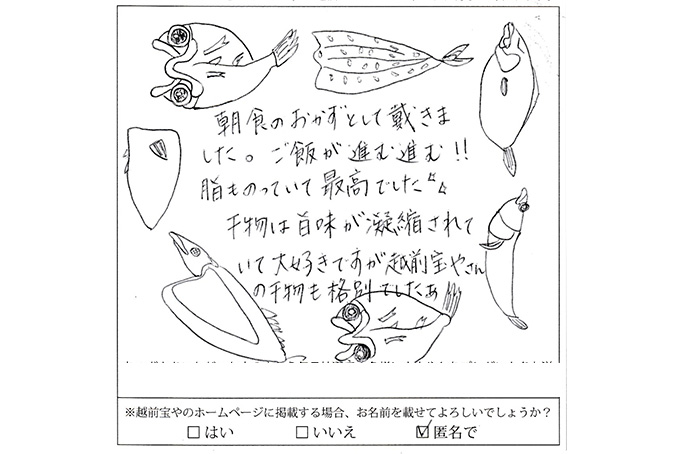 朝食のおかずとして戴きま
した。ご飯が進む進む!!
脂ものっていて最高でした
干物は旨味が凝縮されて
いて大好きですが越前宝やさん
の干物も格別でしたぁ
※越前宝やのホームページに掲載する場合、お名前を載せてよろしいでしょうか?
□はい □いいえ ☑匿名で